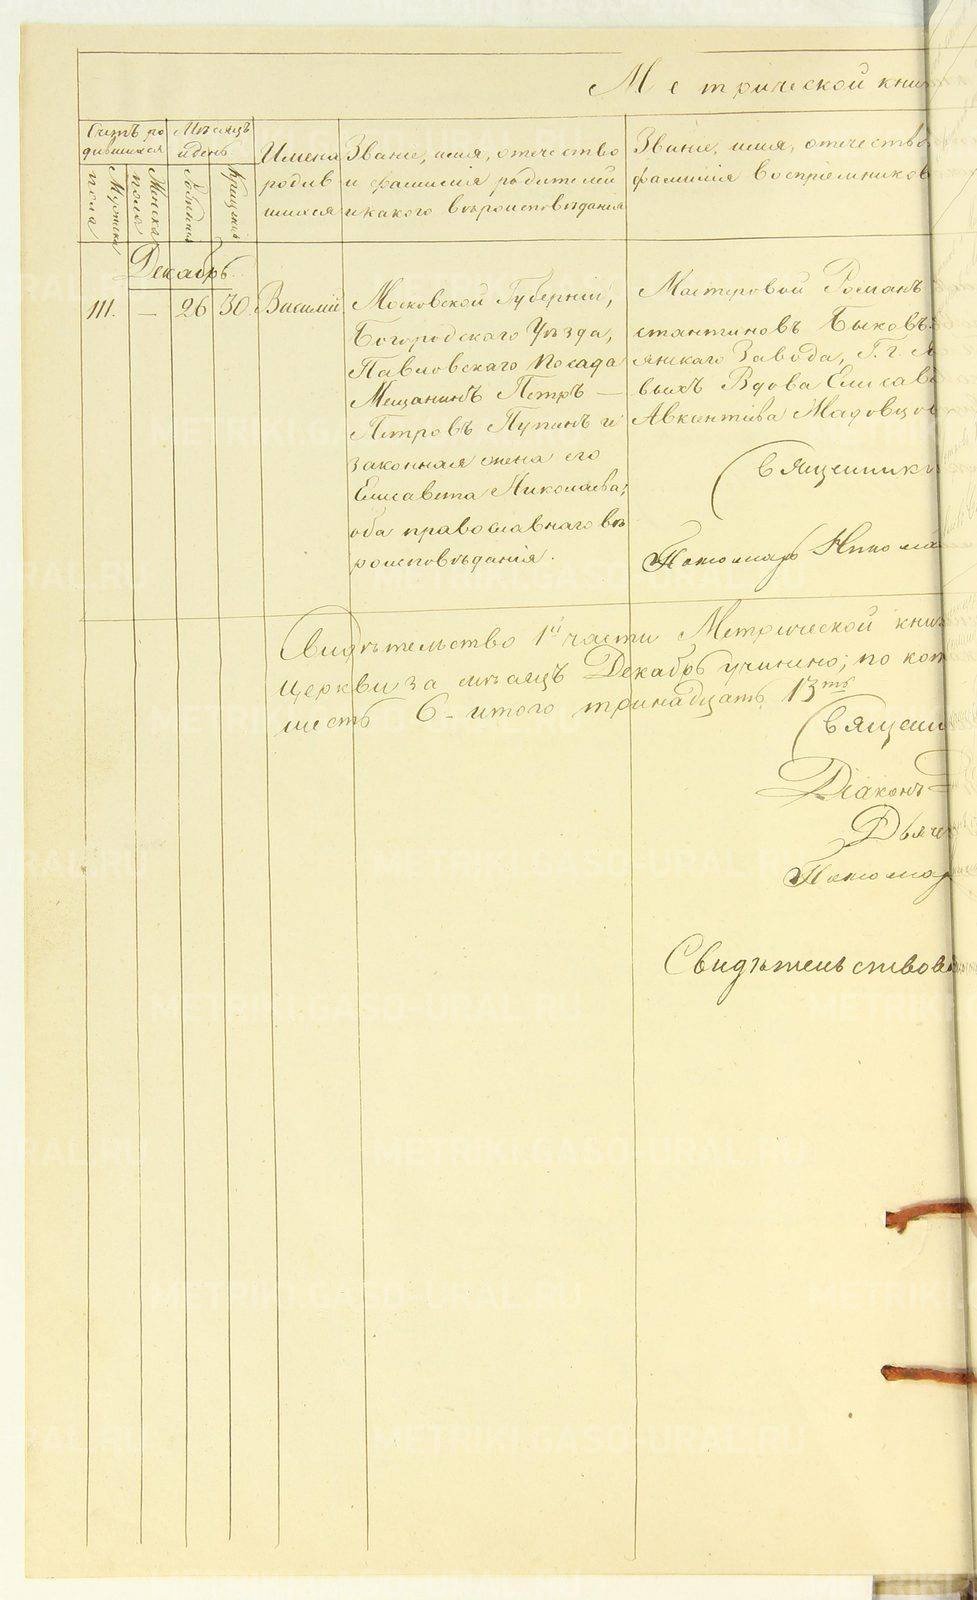 Метрической книг
Счетъ ро
дившихся
Мѣсяцъ
и день
Имена
родив
шихся
Званіе, имя, отечество
и фамилія родителей
и какого вѣроисповѣданія
Званіе, имя, отечество,
фамилія воспріемников
Мужска
пола
Женска
пола
Рожденія
Крещенія
Декабрь
111. — 26 30. Василій
Московской Губерніи,
Богородскаго Уѣзда,
Павловскаго Посада
Мещанинъ Петръ —
Петровъ Пупинъ и
законная жена его
Елисавета Николаева;
оба православнаго вѣ
роисповѣданія.
Мастеровой Романъ
стантиновъ Быковъ
янскаго Завода, Г. г.
выхъ Вдова Елисав
Авксентіева
Священники
Пономарь Никола
Свидѣтельство 1й части Метрической книг
Церкви за мѣсяцъ Декабрь учинено; по кот
шесть 6 - итого тринадцать 13ть
Священ
Діаконъ
Дьяче
Пономар
Свидѣтельствова
METRIKI.GASO-URAL.RU